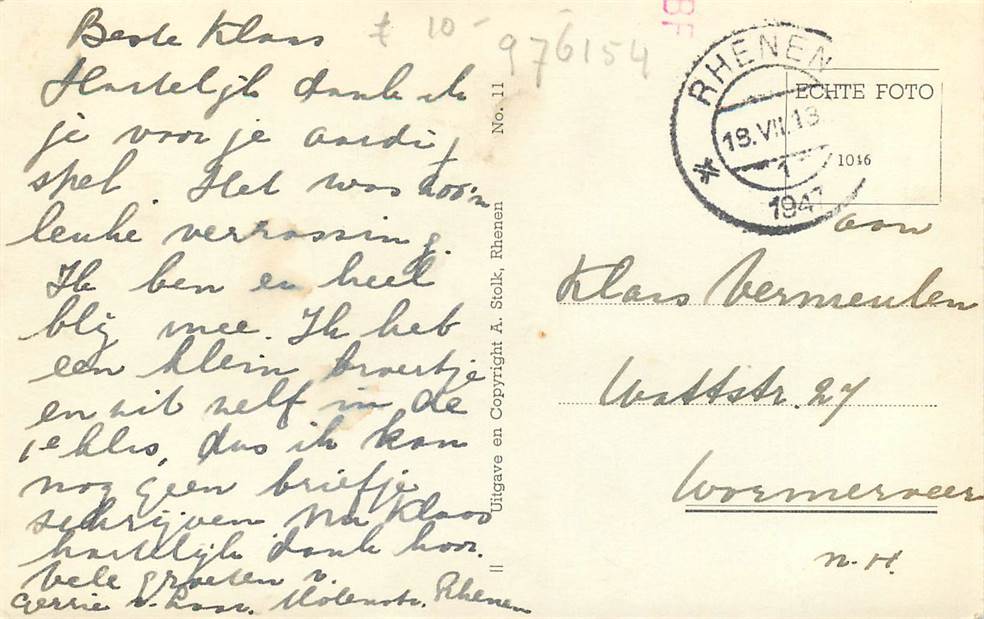 Beste Klaas
Hartelijk dank ik
je voor je aardig
spel. Het was zoo'n
leuke verrassing.
Ik ben er heel
blij mee. Ik heb
een klein broertje
en zit zelf in de
1e klas, dus ik kan
nog geen briefje
schrijven. Nu Klaas
hartelijk dank hoor.
vele groeten v.
Gerrie v. Molenstr. Rhenen
10-
976154
BF
No. 11
Uitgave en Copyright A. Stolk, Rhenen
RHENEN
18.VII.13
1
1947
ECHTE FOTO
1046
aan
Klaas Vermeulen
Wattstr. 27
Wormerveer
N.H.